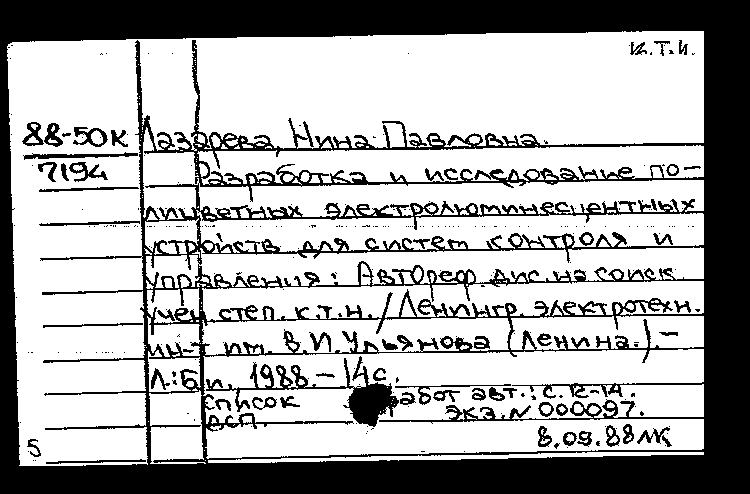 к.т.н.
88-50К Лазарева, Нина Павловна.
7194 Разработка и исследование по-
лицветных электролюминесцентных
устройств для систем контроля и
управления: Автореф. дис. на соиск.
учен. степ. к.т.н. / Ленингр. электротехн.
ин-т им. В.И. Ульянова (Ленина). -
Л.: Б.и. 1988. - 14с.
список работ авт.: с. 12-14.
ДСП. экз. N 000097.
5 8.09.88 ЛК